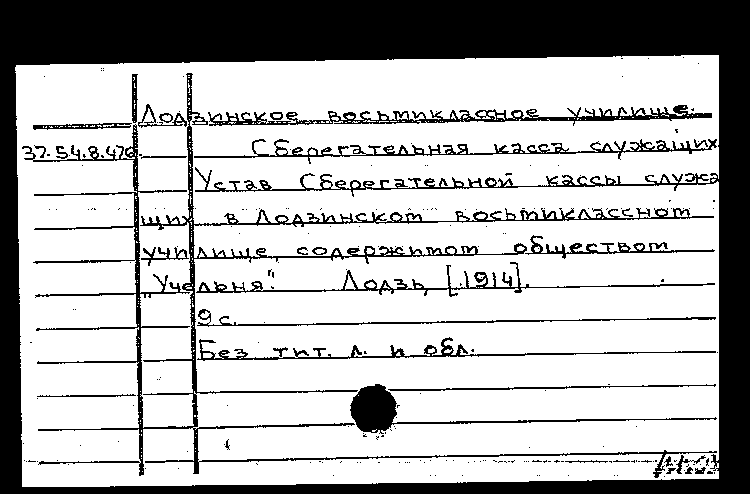 Лодзинское восьмиклассное училище.
37.54.8.476 Сберегательная касса служащих
Устав Сберегательной кассы служа
щих в Лодзинском восьмиклассном
училище, содержимом обществом
„Учельня". Лодзь, [1914].
9 с.
Без тит. л. и обл.